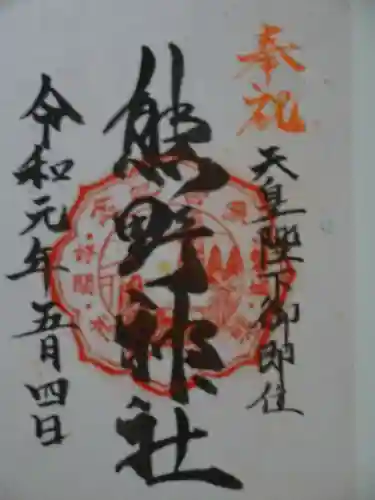 奉祝
天皇陛下御即位
熊野神社
令和元年五月四日